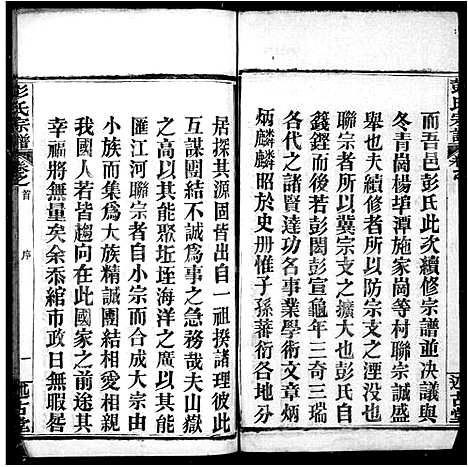 彭氏宗譜
而吾邑彭氏此次續修宗譜並决議與
冬青崗楊埠潭施家崗等村聯宗誠盛
舉也夫續修者所以防宗支之湮沒而
聯宗者所以冀宗支之擴大也彭氏自
鏗而若彭閎彭宣龜年三奇三瑞
各代之諸賢達其事業學術文章
炳麟麟昭於史册惟子孫蕃衍各
述古堂
居探其源固皆出自一祖揆諸理彼此
互謀團結不誠爲事之急務哉夫山嶽
之高以其能聚坵垤海洋之廣以其能
匯江河聯宗者自小宗而合成大宗
小族而集爲大族精誠團結相愛相親
我國人若皆趨向在此國家之前途其
幸福將無量矣余忝綰市政日無暇晷
彭氏宗譜 卷之首 序 一 述古堂